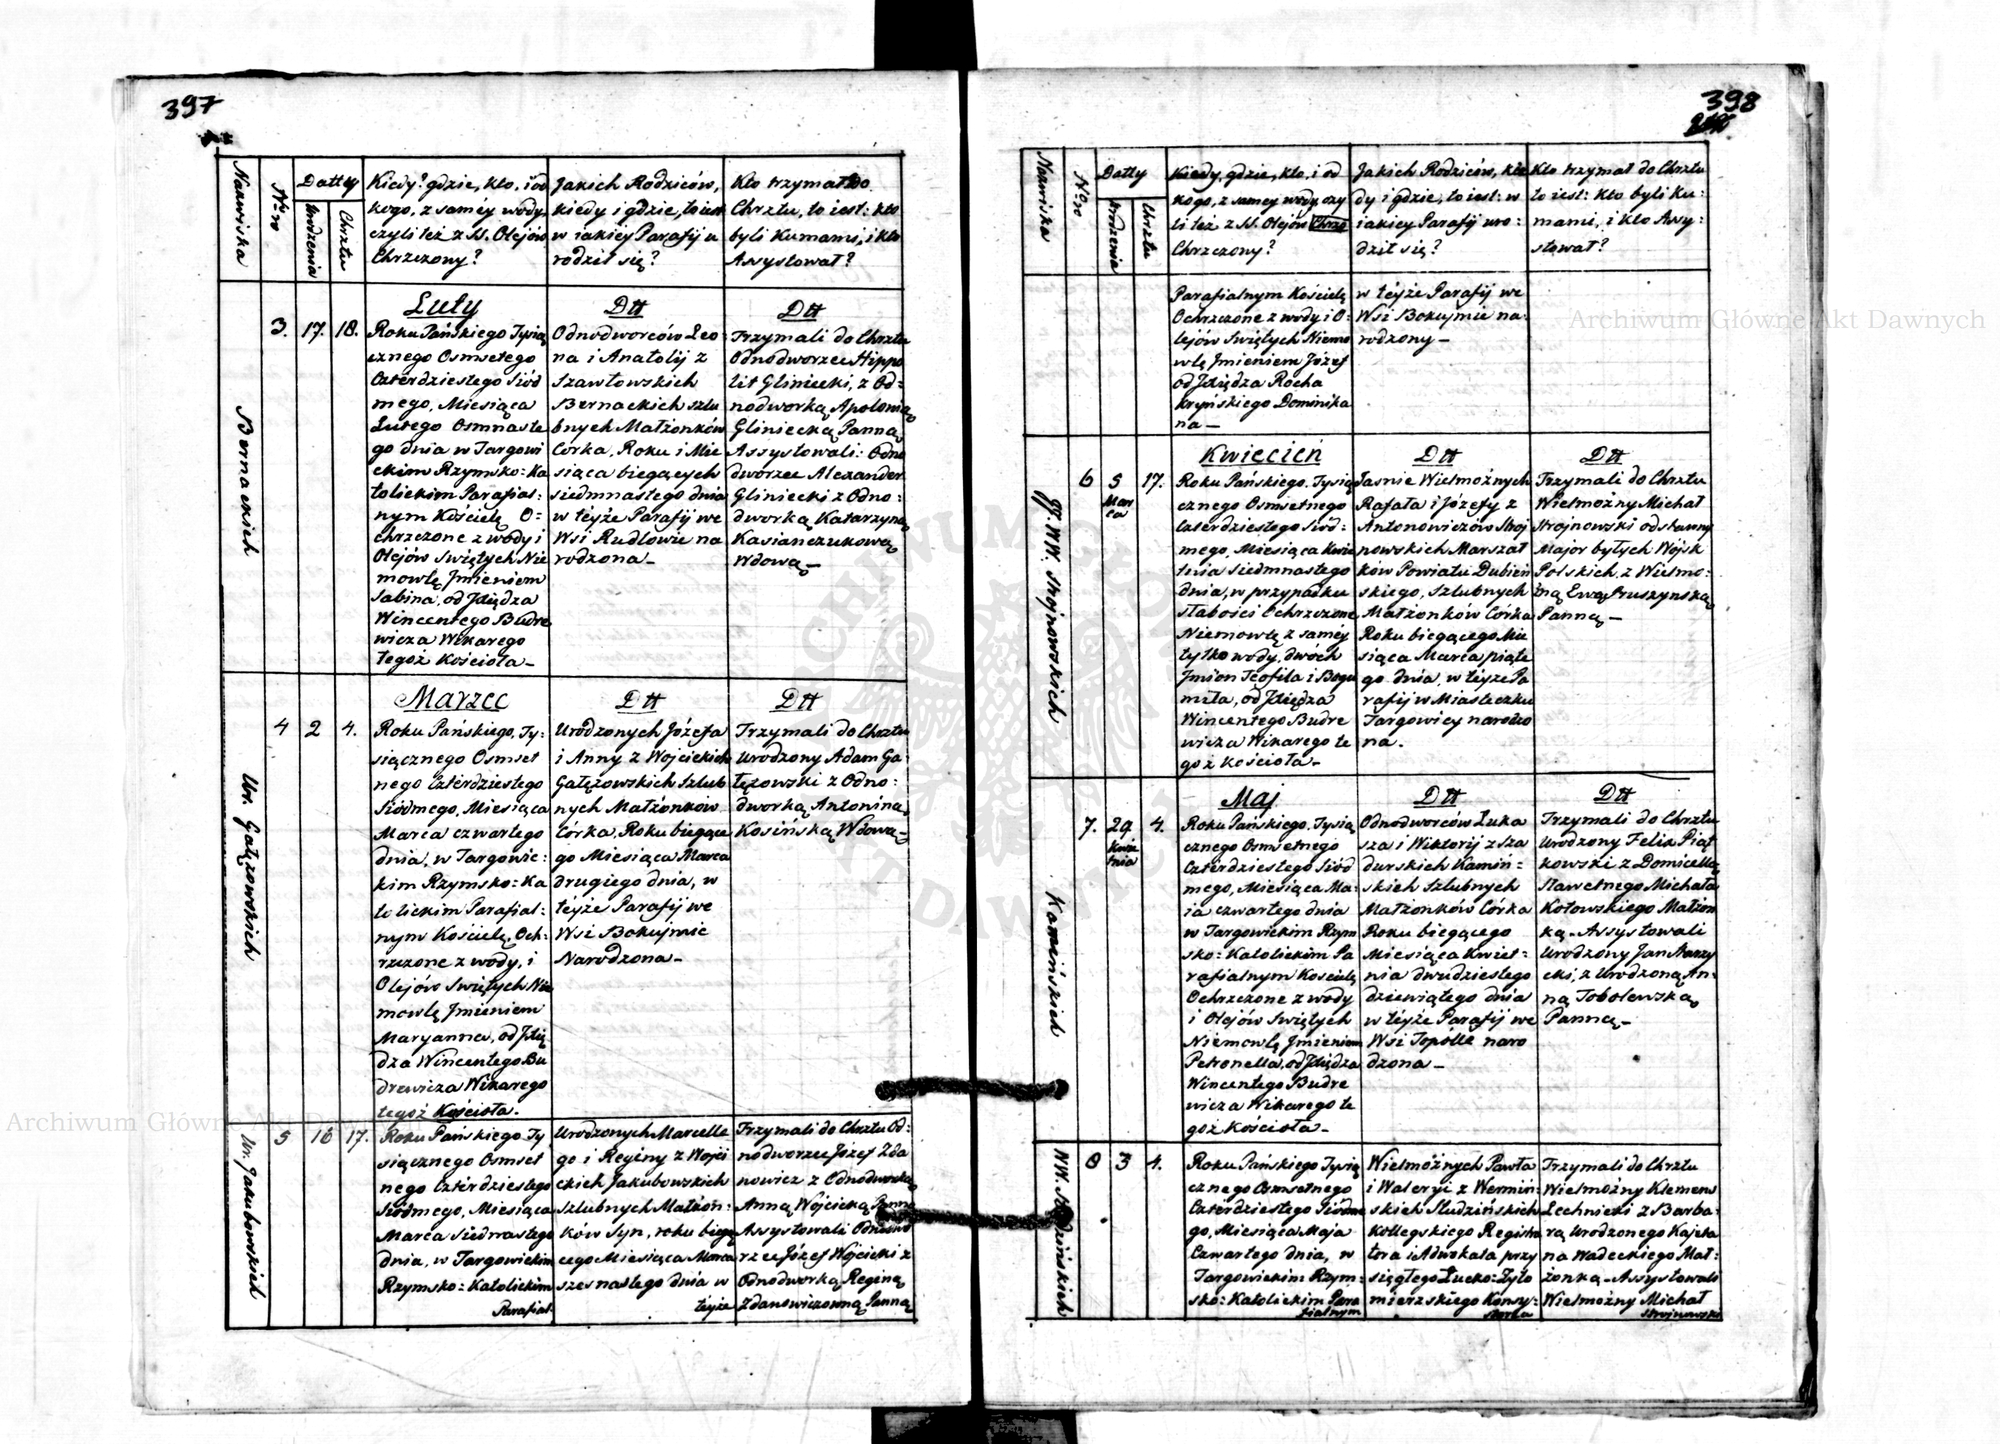 397
Nazwiska
Nro
Datty
Urodzenia
Chrztu
Kiedy? gdzie, kto, i od
kogo, z saméy wody,
czyli też z SS. Olejów
Chrzczony?
Jakich Rodziców,
kiedy i gdzie, to iest
w iakiéy Parafij u
rodził się?
Kto trzymał do
Chrztu, to iest: kto
byli Kumami, i kto
Assystował?
Bernackich
3. 17. 18.
Luty
Roku Pańskiego Tysią
cznego Osmsetego
Czterdziestego Siód
mego, Miesiąca
Lutego Osmnaste
go dnia w Targowi
ckim Rzymsko=Ka
tolickim Parafial=
nym Kościelę O=
chrzczone z wody i
Olejów Swiętych Nie
mowlę Jmieniem
Sabina, od Xiędza
Wincentego Budre
wicza Wikarego
tegoż Kościoła_
Dtt
Odnodworców Leo
na i Anatolij z
Szawłowskich
Bernackich szlu
bnych Małżonków
Córka, Roku i Mie
siąca biegących
siedmnastego dnia
w téyże Parafij we
Wsi Rudlowie na
rodzona_
Dtt
Trzymali do Chrztu
Odnodworzec Hippo
lit Gliniecki, z Od=
nodworką Apolonią
Gliniecką Panną
Assystowali: Odno
dworzec Alexander
Gliniecki z Odno=
dworką Katarzyną
Kasianczukową
Wdową_
Ur. Gałęzowskich
4 2 4.
Marzec
Roku Pańskiego, Ty=
siącznego Osmset
nego Czterdziestego
Siódmego, Miesiąca
Marca czwartego
dnia, w Targowic=
kim Rzymsko=Ka
tolickim Parafial=
nym Kościelę, Och=
rzczone z wody, i
Olejów Swiętych Nie
mowlę Jmieniem
Maryanna, od Xię
dza Wincentego Bu
drewicza Wikarego
tegoż Kościoła.
Dtt
Urodzonych Józefa
i Anny z Wojcickich
Gałęzowskich Szlub
nych Małżonków
Córka, Roku biegące
go Miesiąca Marca
drugiego dnia, w
téyże Parafij we
Wsi Bokujmie
Narodzona_
Dtt
Trzymali do Chrztu
Urodzony Adam Ga=
łęzowski z Odno=
dworką Antoniną
Kosińską Wdową_
Ur. Jakubowskich
5 16 17.
Roku Pańskiego Ty
siącznego Osmset
nego Czterdziestego
Siódmego, Miesiąca
Marca Siedmastego
dnia, w Targowickim
Rzymsko=Katolickim
Parafial
Urodzonych Marcelle
go i Reginy z Wojci
ckich Jakubowskich
Szlubnych Małżon=
ków Syn, roku biegą
cego Miesiąca Marca
szesnastego dnia w
téyże
Trzymali do Chrztu Od=
nodworzec Józef Zda
nowicz z Odnodworką
Anną Wojcicką Panną
Assystowali Odnodwo
rzec Józef Wojcicki z
Odnodworką Reginą
Zdanowiczowną Panną
398
Nazwiska
Nro
Datty
Urodzenia
Chrztu
Kiedy, gdzie, kto, i od
kogo, z samey wody, czy
li też z SS. Olejów Chrzo
Chrzczony?
Jakich Rodziców, kie
dy i gdzie, to iest: w
iakiey Parafij uro=
dził się?
Kto trzymał do Chrztu
to iest: kto byli Ku=
mami, i kto Assy=
stował?
Parafialnym Kościelę
Ochrzczone z wody i O=
lejów Swiętych Niemo
wlę Jmieniem Józef
od Xiędza Rocha
Krynskiego Dominika
na_
w téyże Parafij we
Wsi Bokujmie na=
rodzony_
JJ. WW. Strojnowskich
6 5 17.
Mar
ca
Kwiecień
Roku Pańskiego, Tysią
cznego Osmsetnego
Czterdziestego Siód=
mego, Miesiąca Kwie
tnia siedmnastego
dnia, w przypadku
słabości Ochrzczone
Niemowlę z saméy
tylko wody, dwóch
Jmion Teofila i Bogu
miła, od Xiędza
Wincentego Budre
wicza Wikarego te
goż Kościoła_
Dtt
Jasnie Wielmożnych
Rafała i Józefy z
Antonowiczów Stroj
nowskich Marszał
ków Powiatu Dubień
skiego, Szlubnych
Małżonków Córka
Roku biegącego Mie
siąca Marca piąte
go dnia, w téyże Pa
rafij w Miasteczku
Targowicy narodzo
na.
Dtt
Trzymali do Chrztu
Wielmożny Michał
Strojnowski odstawny
Major byłych Wojsk
Polskich, z Wielmo=
żną Ewą Pruszynską
Panną_
Kamińskich
7. 29. 4.
Kwie
tnia
Maj
Roku Pańskiego, Tysią
cznego Osmsetnego
Czterdziestego Siód
mego, Miesiąca Ma=
ia czwartego dnia
w Targowickim Rzym
sko=Katolickim Pa
rafialnym Kościelę
Ochrzczone z wody
i Olejów Swiętych
Niemowlę Jmieniem
Petronella, od Xiędza
Wincentego Budre
wicza Wikarego te
goż Kościoła_
Dtt
Odnodworców Łuka
sza i Wiktorij z Sza
durskich Kamiń=
skich Szlubnych
Małżonków Córka
Roku biegącego
Miesiąca Kwiet=
nia dwudziestego
dziewiątego dnia
w téyże Parafij we
Wsi Topólle naro
dzona_
Dtt
Trzymali do Chrztu
Urodzony Felix Piąt
kowski z Domicellą
Sławetnego Michała
Kotowskiego Małżon
ką_Assystowali
Urodzony Jan Starzy
cki, z Urodzoną An=
ną Tobolewską
Panną_
WW. Studzińskich
8 3 4.
Roku Pańskiego Tysią
cznego Osmsetnego
Czterdziestego Siódme
go, Miesiąca Maja
Czwartego dnia, w
Targowickim Rzym=
sko=Katolickim Para
fialnym
Wielmożnych Pawła
i Waleryi z Wermiń=
skich Studzińskich
Kollegskiego Registra
tora i Adwokata przy
sięgłego Łucko=Żyto
mierzskiego Konsy=
storza
Trzymali do Chrztu
Wielmożny Klemens
Lechnicki z Barba=
rą Urodzonego Kajeta
na Wadeckiego Mał=
żonką_Assystowali
Wielmożny Michał
Strojnowski
Archiwum Główne Akt Dawnych
Archiwum Główne Akt Dawnych